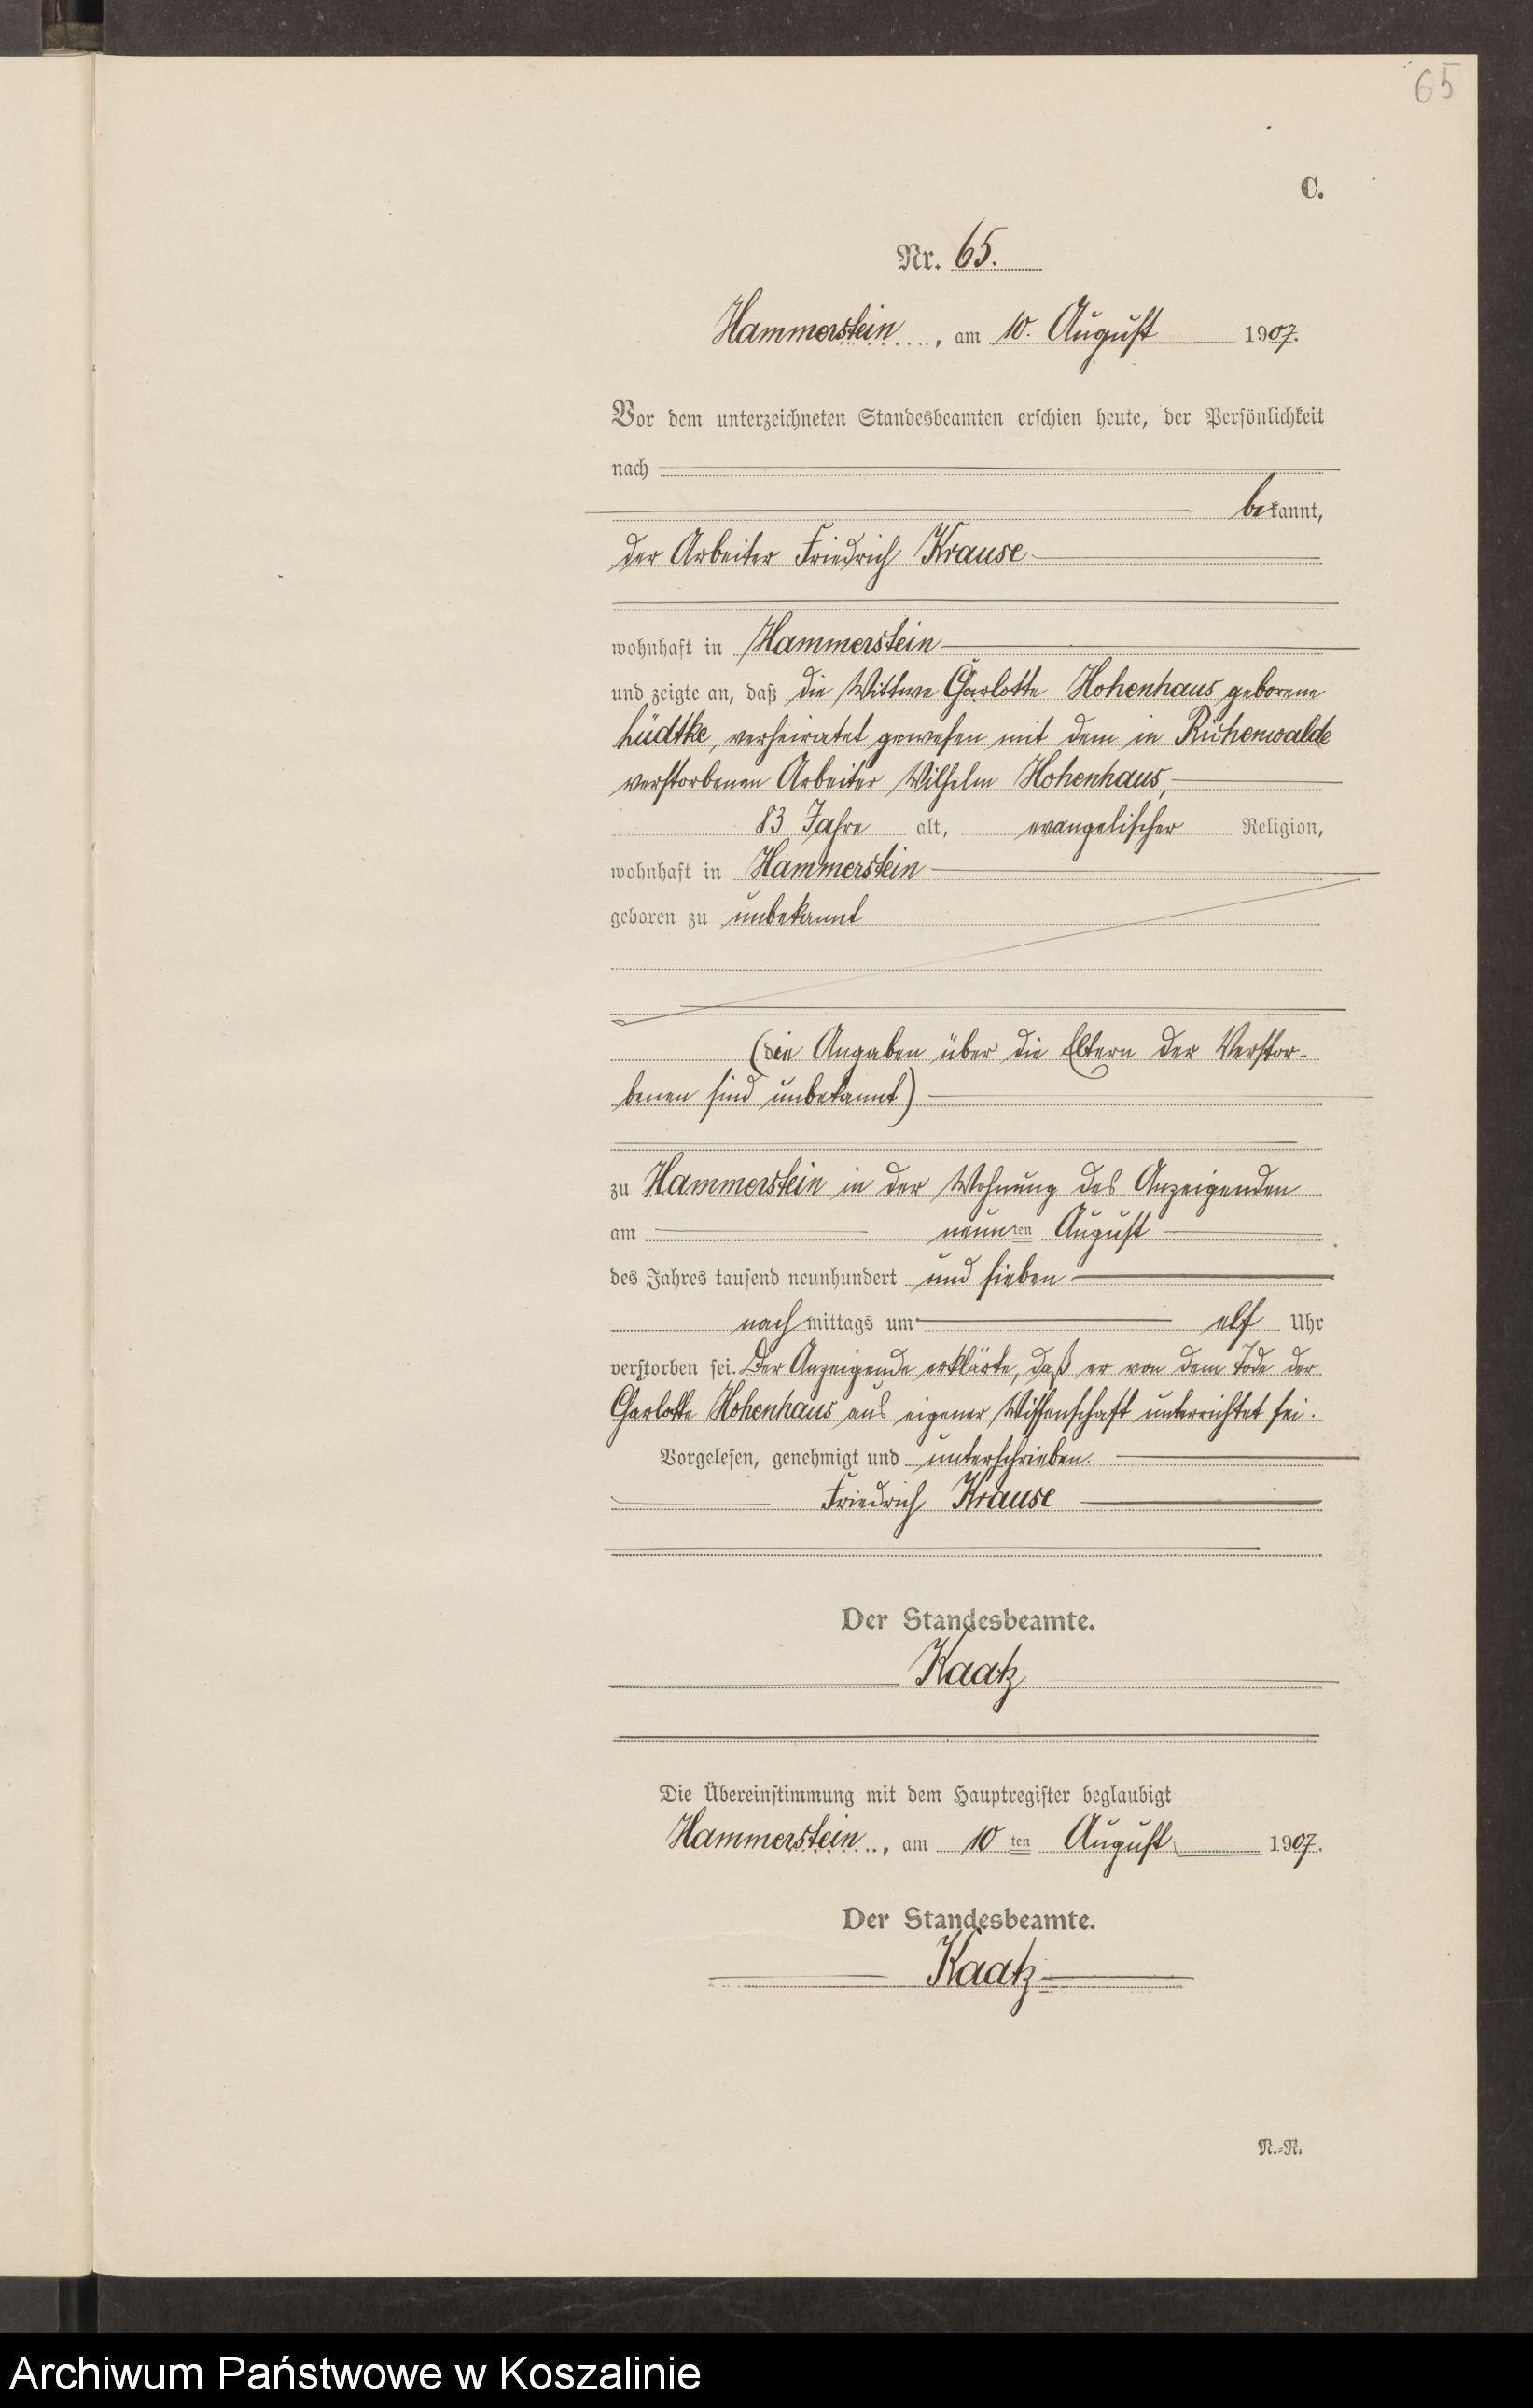 65
C.
Nr. 65.
Hammerstein, am 10. August 1907.
Vor dem unterzeichneten Standesbeamten erschien heute, der Persönlichkeit
nach
bekannt,
der Arbeiter Friedrich Krause
wohnhaft in Hammerstein
und zeigte an, daß die Wittwe Charlotte Hohenhaus geborene
Lüdtke, verheiratet gewesen mit dem in Ruhenwalde
verstorbenen Arbeiter Wilhelm Hohenhaus,
83 Jahre alt, evangelischer Religion,
wohnhaft in Hammerstein
geboren zu unbekannt
(die Angaben über die Eltern der Verstor-
benen sind unbekannt)
zu Hammerstein in der Wohnung des Anzeigenden
am neunten August
des Jahres tausend neunhundert und sieben
nachmittags um elf Uhr
verstorben sei. Der Anzeigende erklärte, daß er von dem Tode der
Charlotte Hohenhaus aus eigener Wissenschaft unterrichtet sei.
Vorgelesen, genehmigt und unterschrieben.
Friedrich Krause
Der Standesbeamte.
Kaatz
Die Übereinstimmung mit dem Hauptregister beglaubigt
Hammerstein, am 10ten August 1907.
Der Standesbeamte.
Kaatz
N.-R.
Archiwum Państwowe w Koszalinie